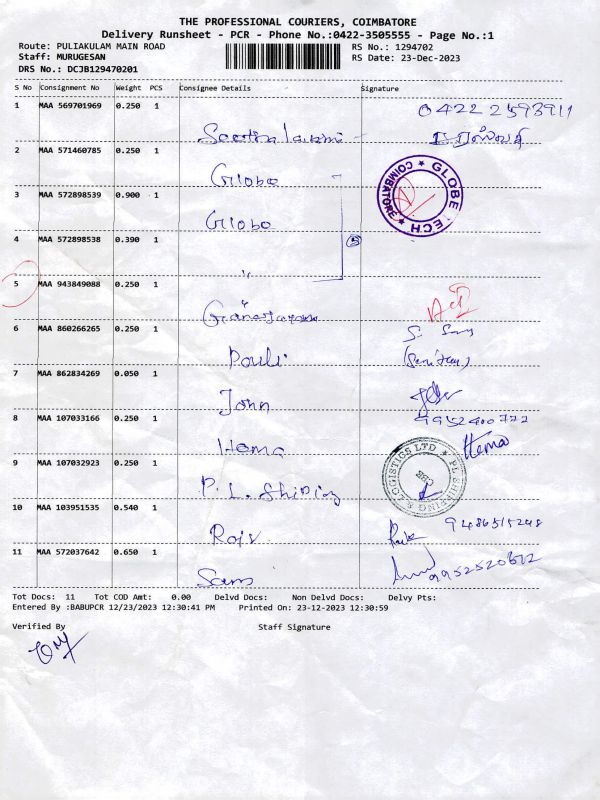 THE PROFESSIONAL COURIERS, COIMBATORE
Delivery Runsheet - PCR - Phone No.:0422-3505555 - Page No.:1
Route: PULIAKULAM MAIN ROAD RS No.: 1294702
Staff: MURUGESAN RS Date: 23-Dec-2023
DRS No.: DCJB129470201
S No Consignment No Weight PCS Consignee Details Signature
1 MAA 569701969 0.250 1 0422 2593911
2 MAA 571460785 0.250 1
Globe
3 MAA 572898539 0.900 1
Globe
GLOBE TECH * COIMBATORE *
4 MAA 572898538 0.390 1
"
5 MAA 943849088 0.250 1
6 MAA 860266265 0.250 1
Pauli
7 MAA 862834269 0.050 1
John
8 MAA 107033166 0.250 1 9952400777
Hema Hema
9 MAA 107032923 0.250 1
P. L. Shiping
PL SHIPPING & LOGISTICS LTD * CBE
10 MAA 103951535 0.540 1
9486515248
11 MAA 572037642 0.650 1
Sam
Tot Docs: 11 Tot COD Amt: 0.00 Delvd Docs: Non Delvd Docs: Delvy Pts:
Entered By :BABUPCR 12/23/2023 12:30:41 PM Printed On: 23-12-2023 12:30:59
Verified By Staff Signature